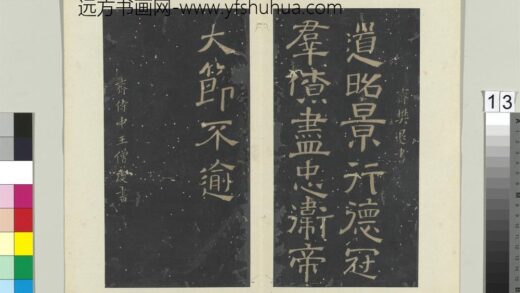 远方书画网-www.yfshuhua.com
道昭景行德冠
羣僚盡忠衛帝
大節不逾
齊侍中王僧虔書
13